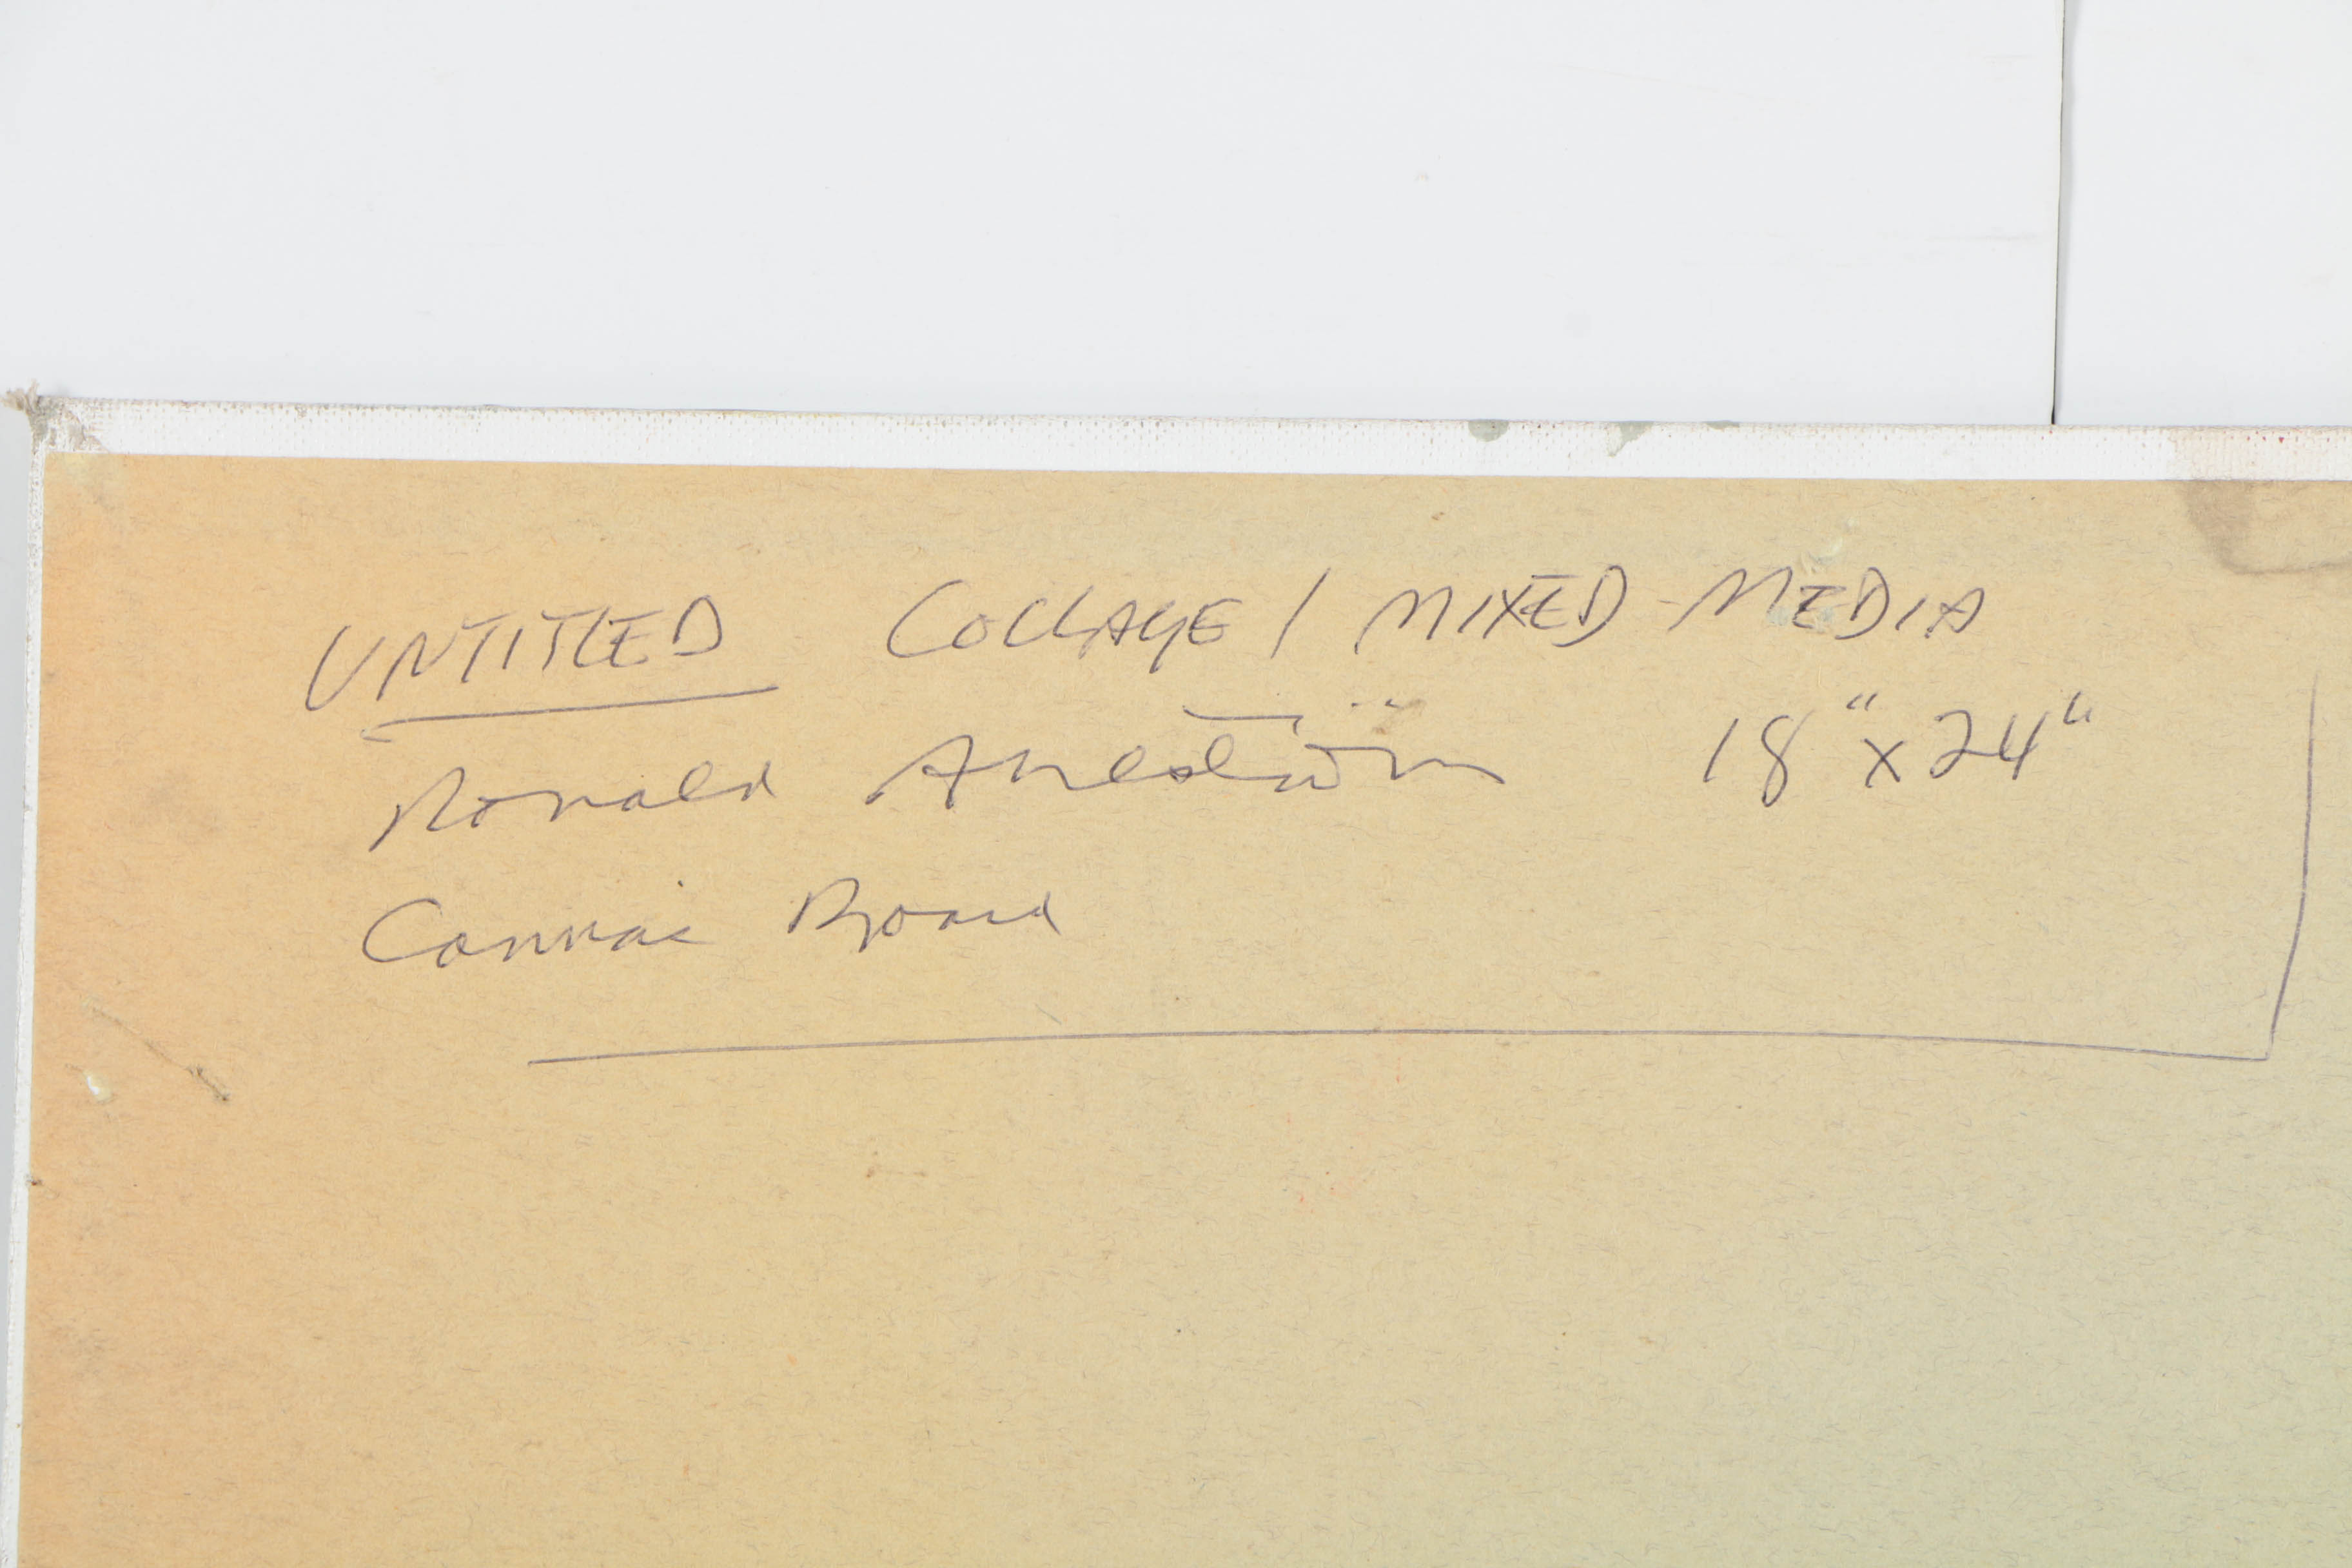 UNTITLED COLLAGE / MIXED-MEDIA
Ronald Ahlström 18" x 24"
Canvas Board